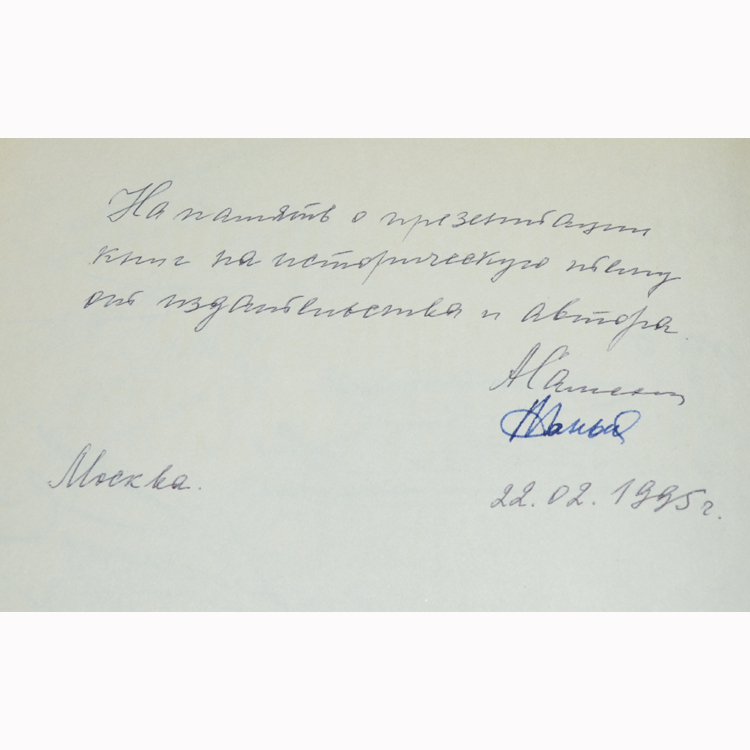 На память о презентации
книг на историческую тему
от издательства и автора.
Москва.
22.02.1995г.